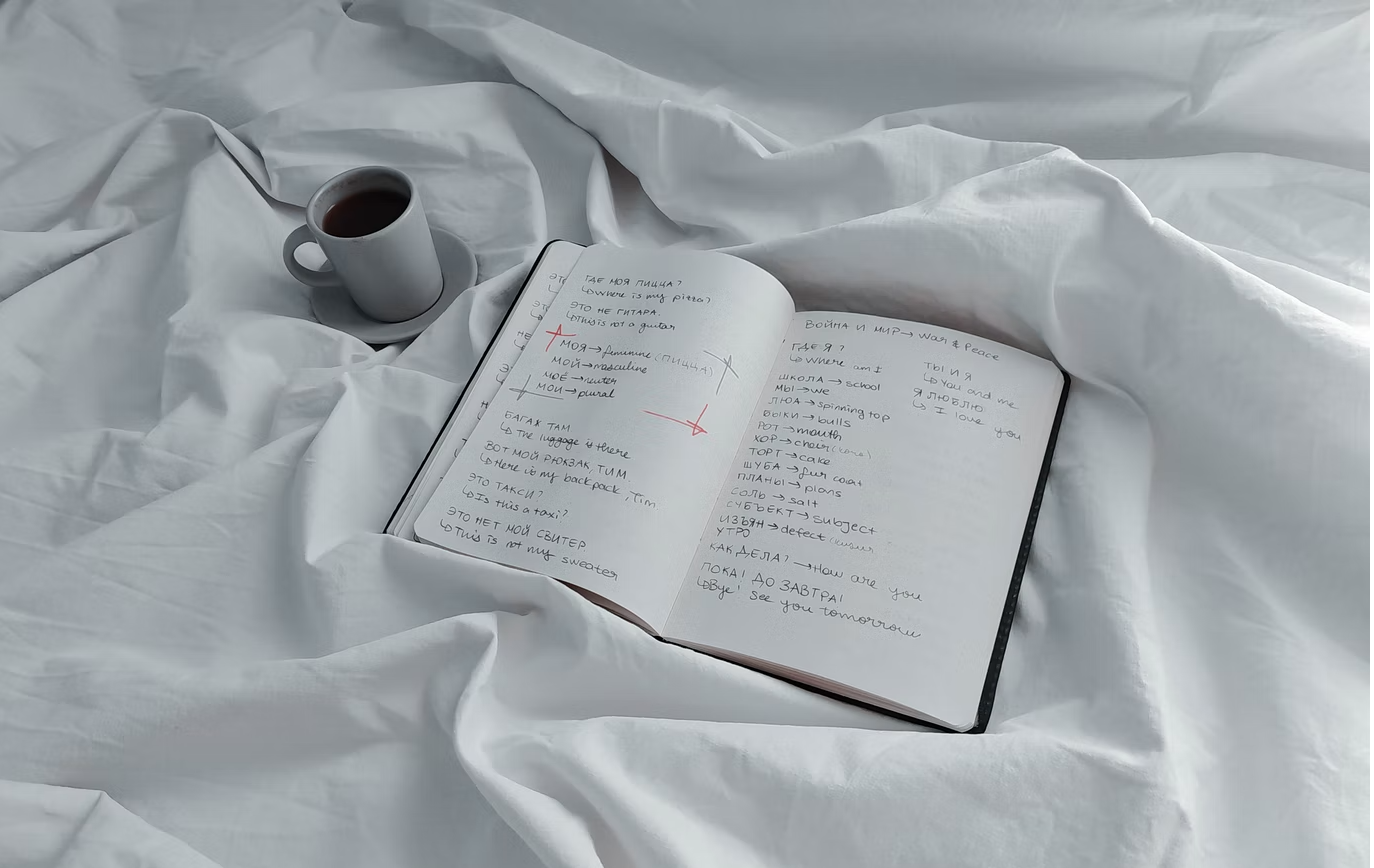 ГДЕ МОЯ ПИЦЦА?
↳Where is my pizza?
ЭТО НЕ ГИТАРА.
↳This is not a guitar
МОЯ→feminine (ПИЦЦА)
МОЙ→masculine
МОЁ→neuter
МОИ→plural
БАГАЖ ТАМ
↳The luggage is there
ВОТ МОЙ РЮКЗАК, ТИМ
↳Here is my backpack, Tim
ЭТО ТАКСИ?
↳Is this a taxi?
ЭТО НЕТ МОЙ СВИТЕР
↳This is not my sweater
ВОЙНА И МИР→ War & Peace
ГДЕ Я?
↳ Where am I
ШКОЛА → school
МЫ→we
ЛЮА→spinning top
БЫКИ→bulls
РОТ→mouth
ХОР→choir
ТОРТ→cake
ШУБА→fur coat
ПЛАНЫ→plans
СОЛЬ→salt
СУБЪЕКТ→subject
ИЗЪЯН→defect
УТРО
КАК ДЕЛА? →How are you
ПОКА! ДО ЗАВТРА!
↳Bye! See you tomorrow
ТЫ И Я
↳ You and me
Я ЛЮБЛЮ
↳ I love you